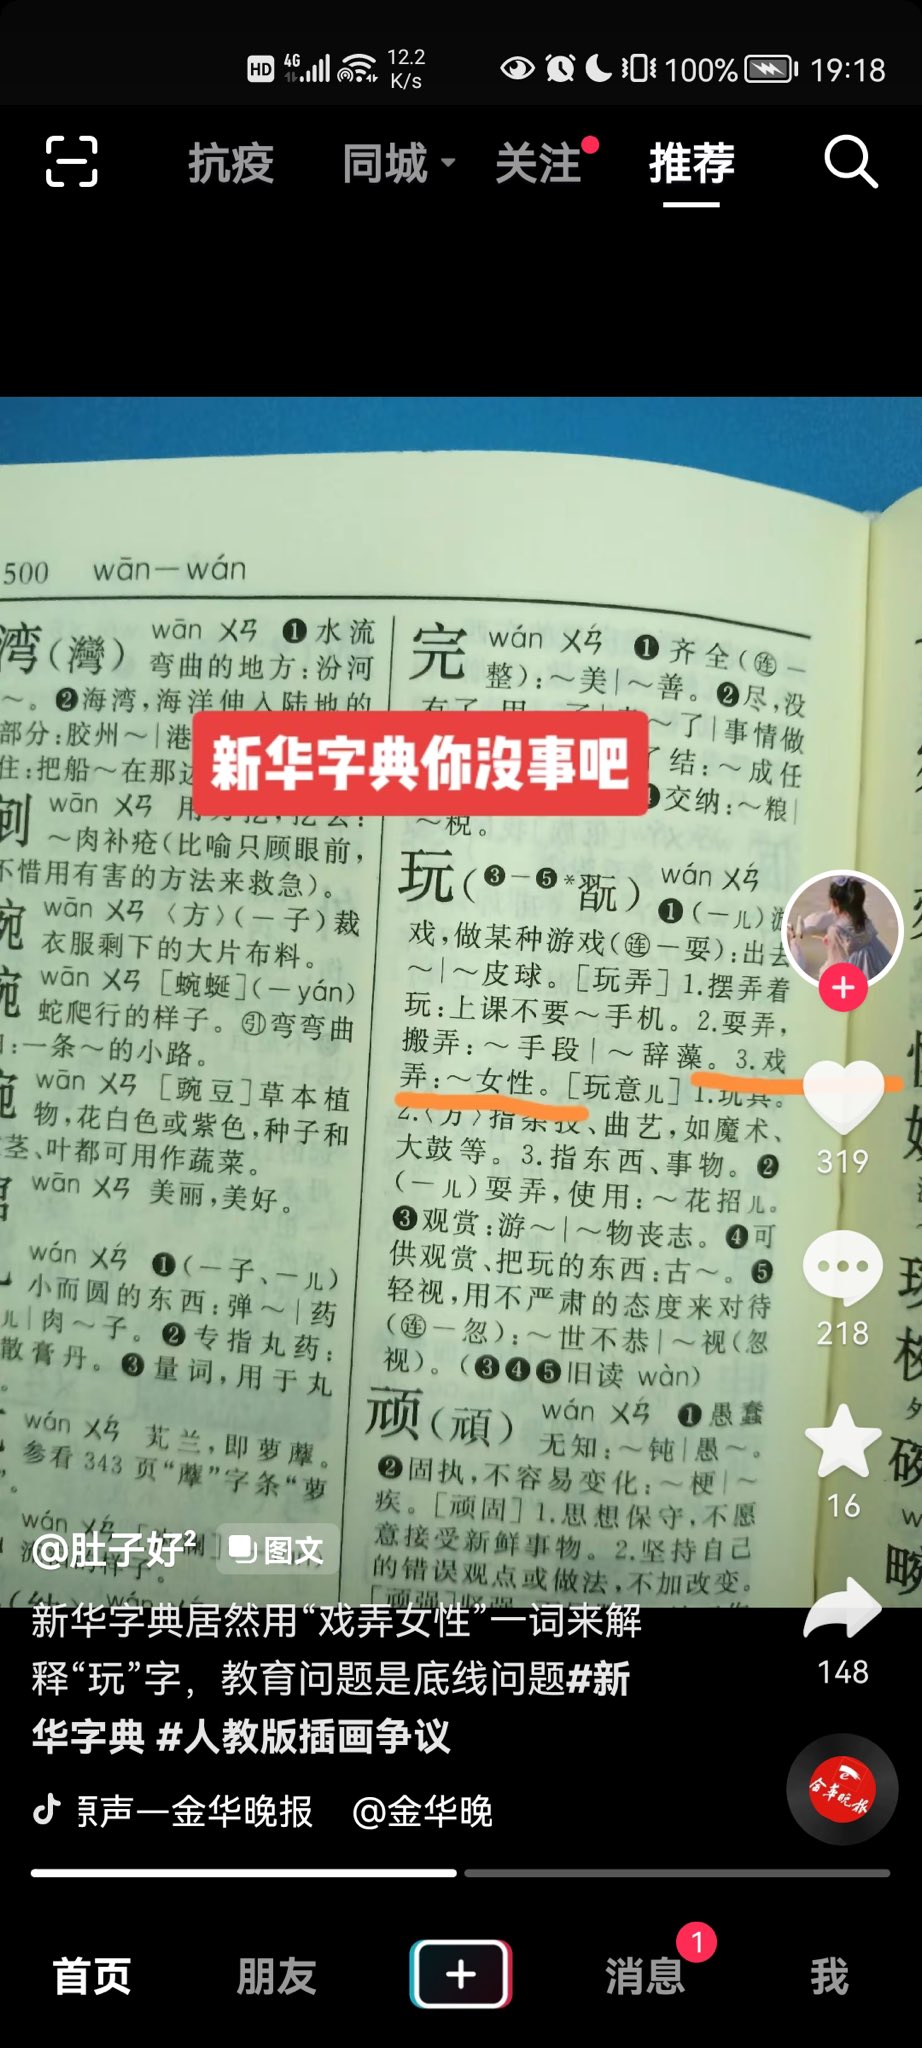 HD 4G 12.2 K/s 100% 19:18
抗疫 同城 关注 推荐
500 wān—wán
湾(灣) wān ㄨㄢ ❶水流
弯曲的地方:汾河
~。❷海湾,海洋伸入陆地的
部分:胶州~|港
住:把船~在那
剜 wān ㄨㄢ
~肉补疮(比喻只顾眼前,
不惜用有害的方法来救急)。
wān ㄨㄢ〈方〉(一子)裁
衣服剩下的大片布料。
蜿 wān ㄨㄢ [蜿蜒](—yán)
蛇爬行的样子。㊁弯弯曲
:一条~的小路。
豌 wān ㄨㄢ [豌豆]草本植
物,花白色或紫色,种子和
茎、叶都可用作蔬菜。
wān ㄨㄢ 美丽,美好。
wán ㄨㄢˊ ❶(一子、一儿)
小而圆的东西:弹~|药
儿|肉~子。❷专指丸药:
散膏丹。❸量词,用于丸
wán ㄨㄢˊ 芄兰,即萝藦。
参看343页“藦”字条“萝
wán ㄨㄢˊ
完 wán ㄨㄢˊ ❶齐全(㊣一
整):~美|~善。❷尽,没
~了|事情做
结:~成任
交纳:~粮|
~税。
新华字典你没事吧
玩(❸—❺*翫) wán ㄨㄢˊ
❶(一儿)游
戏,做某种游戏(㊣一耍):出去
~|~皮球。[玩弄]1.摆弄着
玩:上课不要~手机。2.耍弄,
搬弄:~手段|~辞藻。3.戏
弄:~女性。[玩意儿]1.玩具。
2.〈方〉指杂技、曲艺,如魔术、
大鼓等。3.指东西、事物。❷
(一儿)耍弄,使用:~花招儿。
❸观赏:游~|~物丧志。❹可
供观赏、把玩的东西:古~。❺
轻视,用不严肃的态度来对待
(㊣一忽):~世不恭|~视(忽
视)。(❸❹❺旧读 wàn)
顽(頑) wán ㄨㄢˊ ❶愚蠢
无知:~钝|愚~。
❷固执,不容易变化:~梗|~
疾。[顽固]1.思想保守,不愿
意接受新鲜事物。2.坚持自己
的错误观点或做法,不加改变。
319
218
16
148
@肚子好² 图文
新华字典居然用“戏弄女性”一词来解
释“玩”字，教育问题是底线问题#新
华字典 #人教版插画争议
原声—金华晚报 @金华晚
金华晚报
首页 朋友 消息 1 我